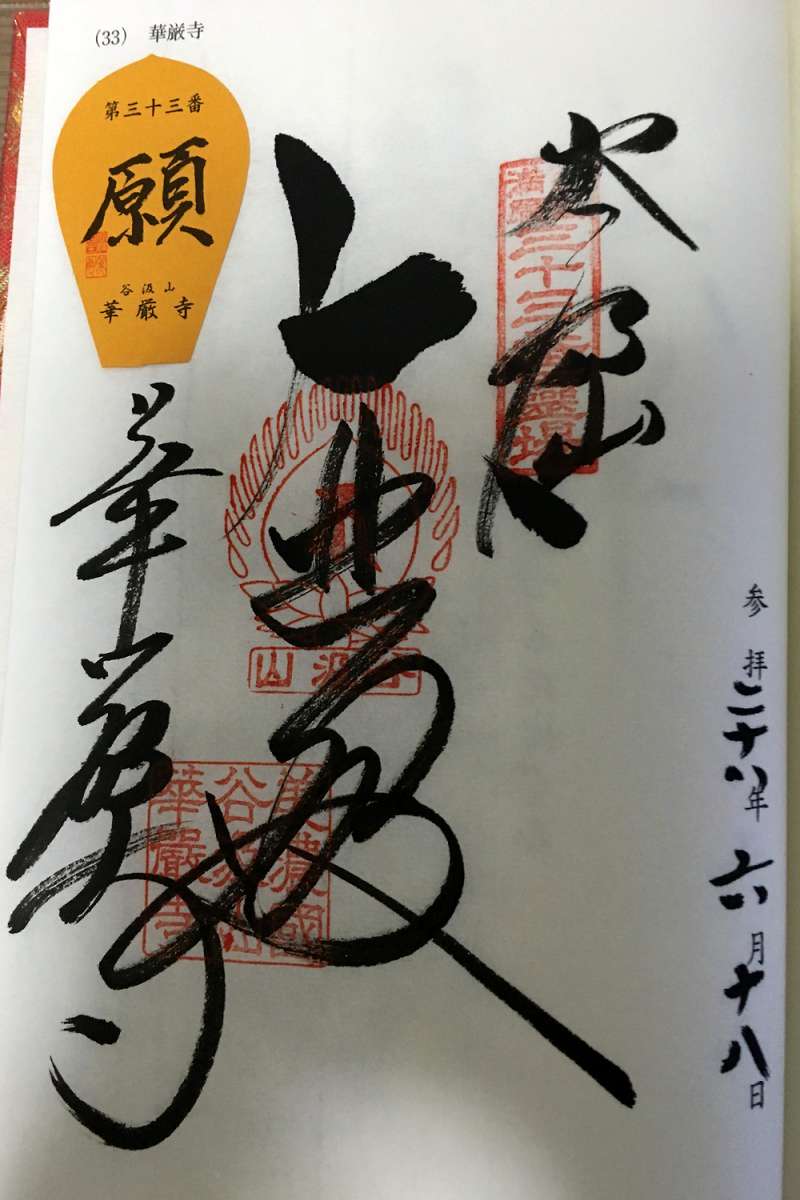 (33) 華厳寺
第三十三番
願
谷汲山
華厳寺
満願三十三番霊場
谷汲山
華厳寺
美濃國
谷汲山
華嚴寺
参拝二十八年六月十八日